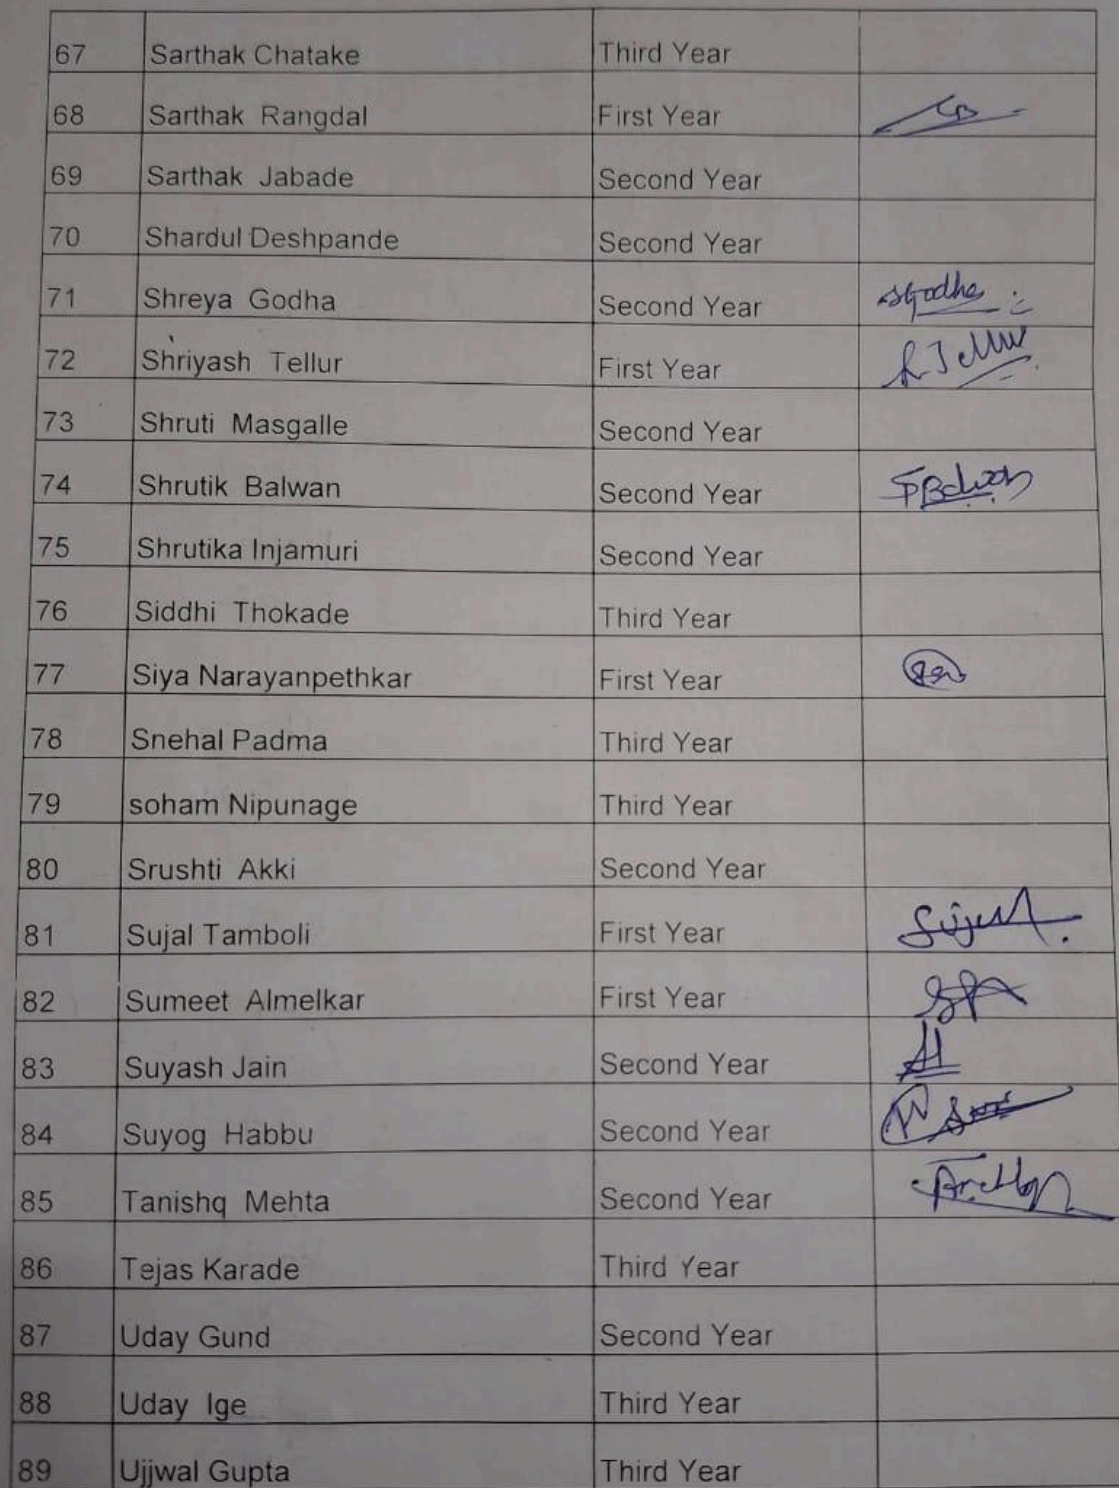 67 Sarthak Chatake Third Year
68 Sarthak Rangdal First Year
69 Sarthak Jabade Second Year
70 Shardul Deshpande Second Year
71 Shreya Godha Second Year sGodha
72 Shriyash Tellur First Year STellur
73 Shruti Masgalle Second Year
74 Shrutik Balwan Second Year SBalwan
75 Shrutika Injamuri Second Year
76 Siddhi Thokade Third Year
77 Siya Narayanpethkar First Year
78 Snehal Padma Third Year
79 soham Nipunage Third Year
80 Srushti Akki Second Year
81 Sujal Tamboli First Year Sujal
82 Sumeet Almelkar First Year
83 Suyash Jain Second Year
84 Suyog Habbu Second Year
85 Tanishq Mehta Second Year
86 Tejas Karade Third Year
87 Uday Gund Second Year
88 Uday Ige Third Year
89 Ujjwal Gupta Third Year